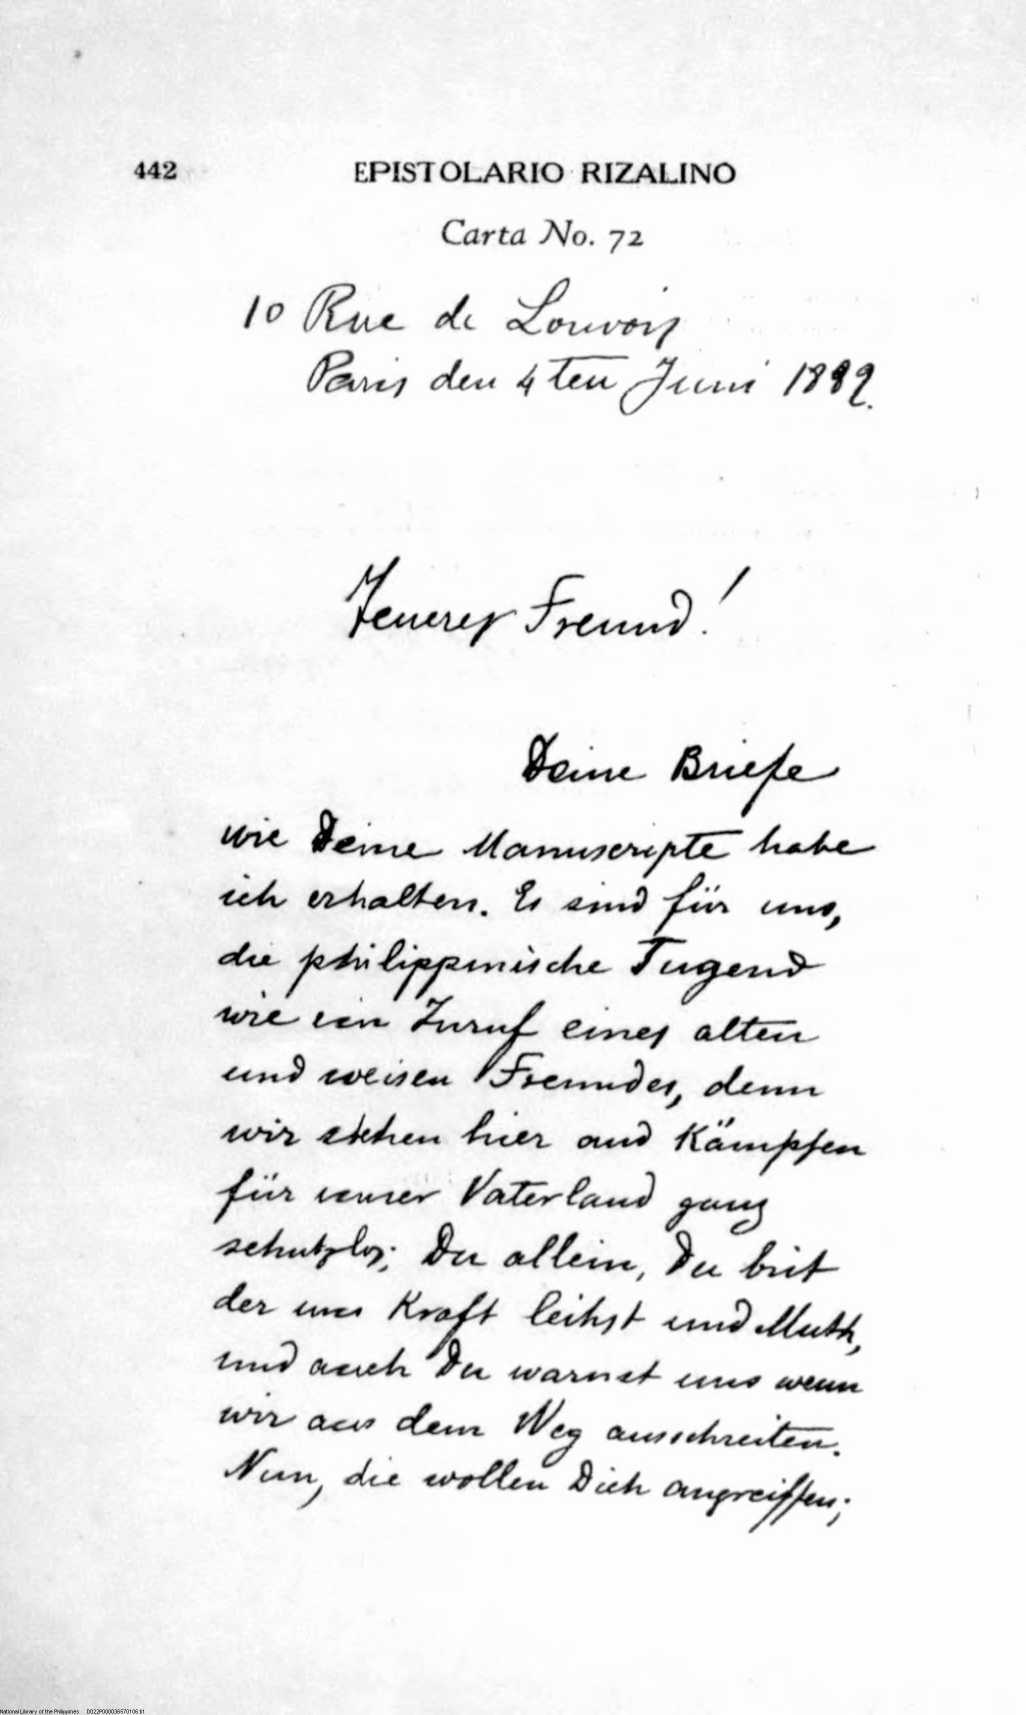 442 EPISTOLARIO RIZALINO
Carta No. 72
10 Rue de Louvois
Paris den 4ten Juni 1889.
Teuerer Freund!
Deine Briefe
wie Deine Manuscripte habe
ich erhalten. Es sind für uns,
die philippinische Jugend
wie ein Zuruf eines alten
und weisen Freundes, denn
wir stehen hier und Kämpfen
für unser Vaterland ganz
schutzlos; Du allein, Du bist
der uns Kraft leihst und Muth,
und auch Du warnst uns wenn
wir aus dem Weg ausschreiten.
Nun, die wollen Dich angreiffen;
National Library of the Philippines D022P000036570106.tif